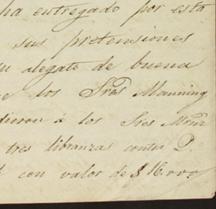 ha entregado por esta
sus pretensiones
su alegato de buena
e los Sres Manning
á los Sres
tres libranzas contra D.
con valor de $16.000